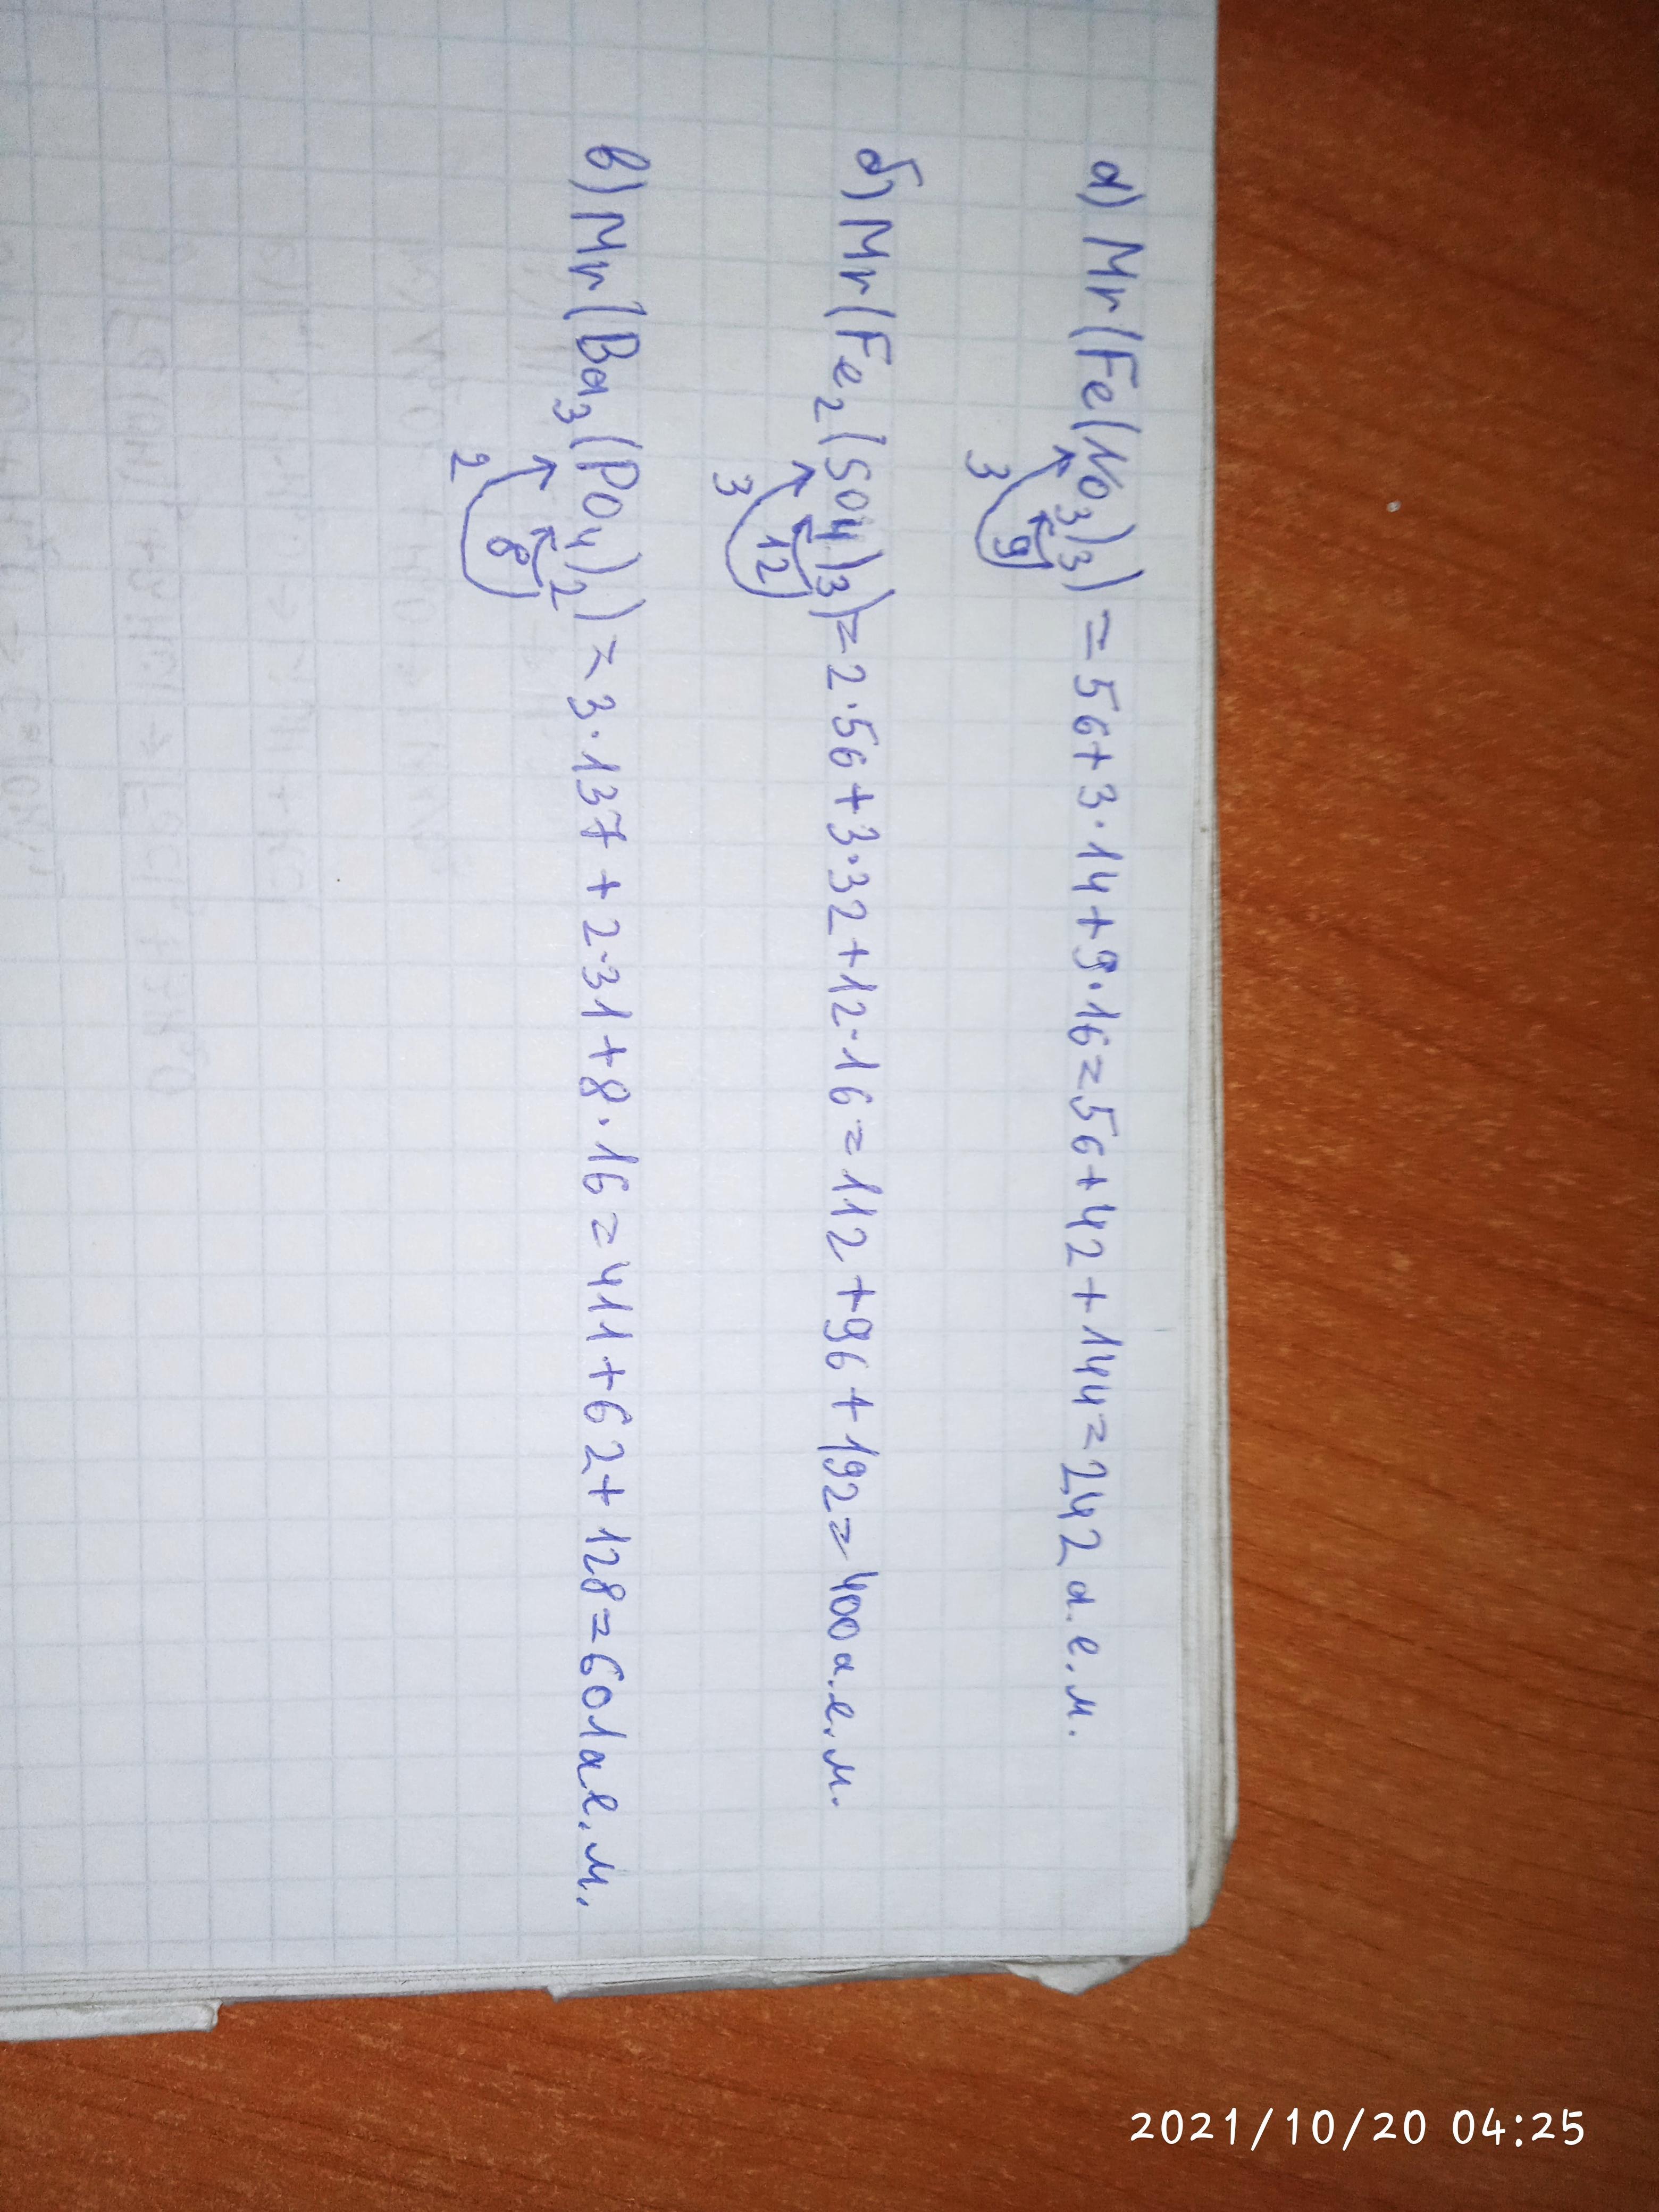 а) Mr(Fe(No3)3) = 56+3·14+9·16=56+42+144=242 а.е.м.
3 9
б) Mr(Fe2(SO4)3)=2·56+3·32+12·16=112+96+192=400а.е.м.
3 12
в) Mr(Ba3(PO4)2)=3·137+2·31+8·16=411+62+128=601ае.м.
2 8
2021/10/20 04:25